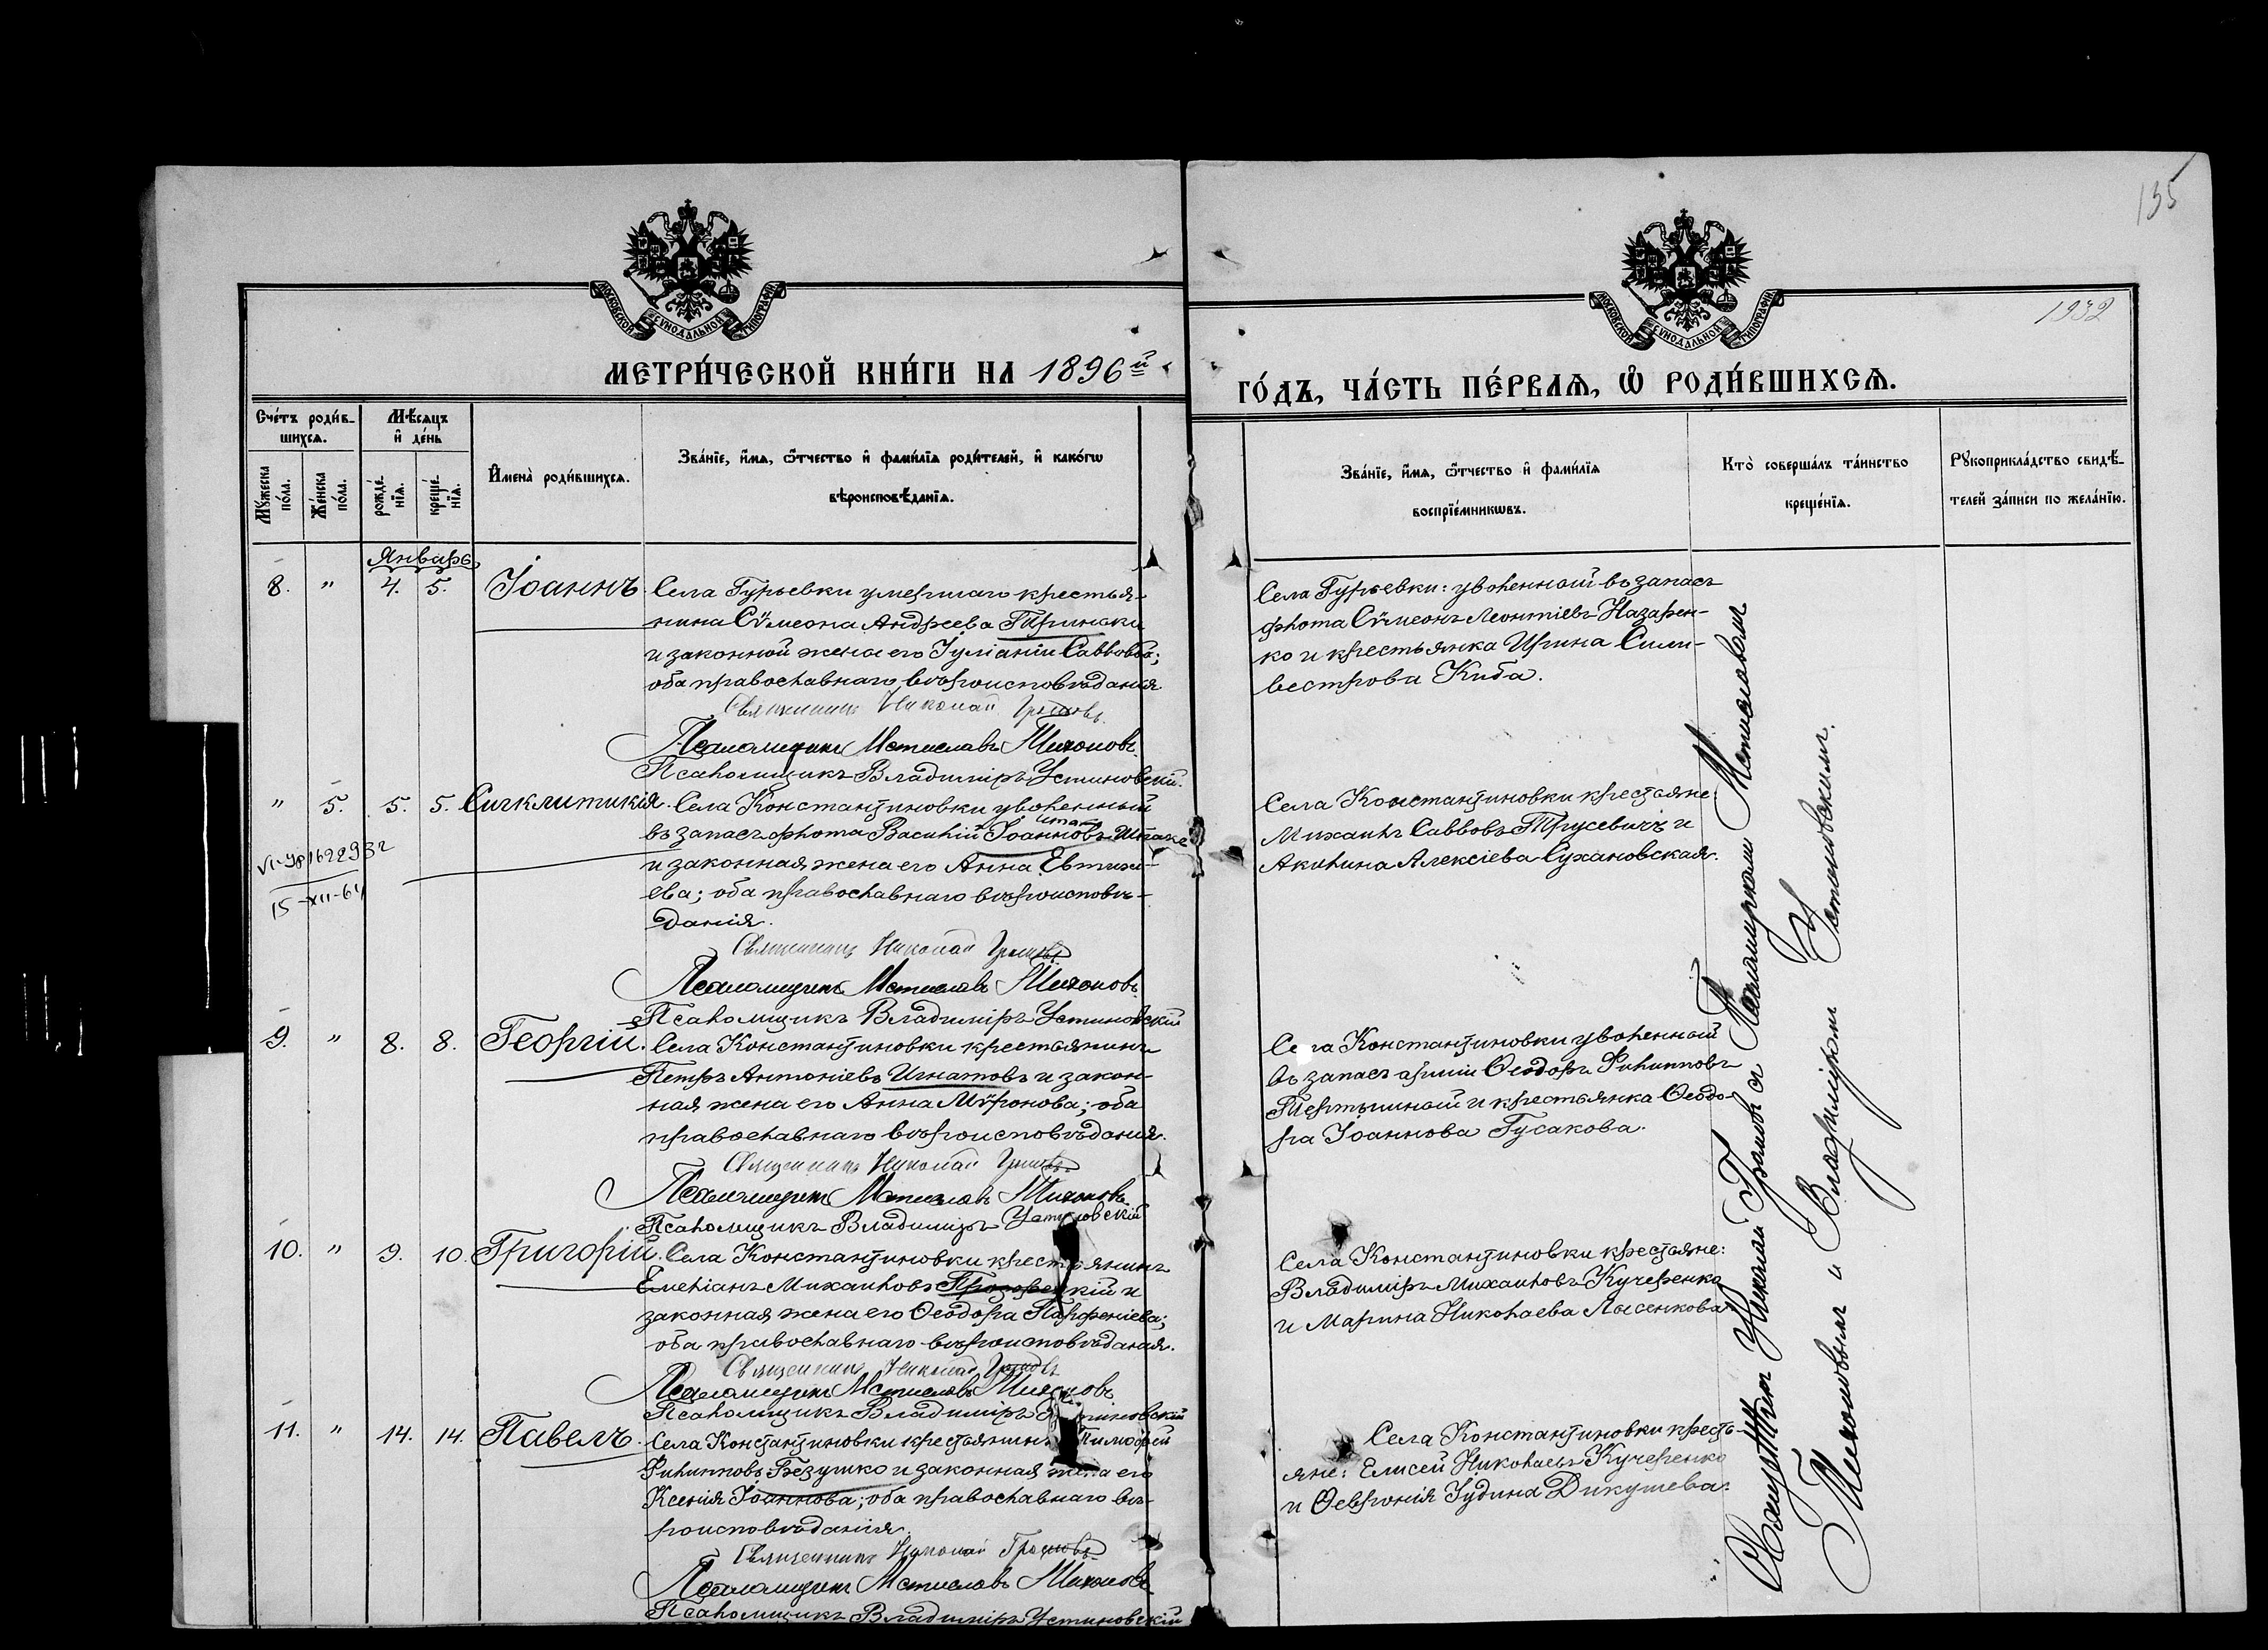 135
1932
МОСКОВСКОЙ СѴНОДАЛЬНОЙ ТИПОГРАФІИ
МОСКОВСКОЙ СѴНОДАЛЬНОЙ ТИПОГРАФІИ
МЕТРИ́ЧЕСКОЙ КНИ́ГИ НА 1896й
ГО́ДЪ, ЧА́СТЬ ПЕ́РВАѦ, Ѡ҆ РОДИ́ВШИХСѦ.
Сче́тъ роди́в-
шихсѧ.
Мꙋжеска по́ла.
Же́нска по́ла.
Мѣ́сѧцъ
и҆ де́нь
рожде́-
нїѧ.
креще́-
нїѧ.
И҆мена̀ роди́вшихсѧ.
Зва́нїе, и҆́мѧ, ѻ҆́тчество и҆ фами́лїѧ роди́телей, и҆ како́гѡ
вѣроисповѣ́данїѧ.
Зва́нїе, и҆́мѧ, ѻ҆́тчество и҆ фами́лїѧ
воспрїе́мникѡвъ.
Кто̀ соверша́лъ та́инство
креще́нїѧ.
Рꙋкоприкла́дство свидѣ́-
телей за́писи по жела́нїю.
Январь
8. " 4. 5. Іоаннъ. Села Гурьевки умершаго крестья-
нина Сѵмеона Андреева
и законной жена его Іуліаніи Саввовой;
оба православнаго вѣроисповѣданія.
Священникъ Николай Громовъ.
Псаломщикъ Мстиславъ Тихоновъ.
Псаломщикъ Владиміръ Устиновскій.
Села Гурьевки: уволенный въ запасъ
флота Сѵмеонъ Леонтіевъ Назарен-
ко и крестьянка Ирина Сили-
вестрова Киба.
" 5. 5. 5. Сигклитикія. Села Константиновки уволенный
въ запасъ флота Василій Іоанновъ
и законная жена его Анна Евтихі-
ева; оба православнаго вѣроисповѣ-
данія.
Священникъ Николай Громовъ
Псаломщикъ Мстиславъ Тихоновъ.
Псаломщикъ Владиміръ Устиновскій
15-XII-64
Села Константиновки крестьяне:
Михаилъ Саввовъ Трусевичъ и
Акилина Алексіева Сухановская.
9. " 8. 8. Георгій. Села Константиновки крестьянинъ
Петръ Антоніевъ Игнатовъ и закон-
ная жена его Анна Мѵронова; оба
православнаго вѣроисповѣданія.
Священникъ Николай Громовъ
Псаломщикъ Мстиславъ Тихоновъ.
Псаломщикъ Владиміръ Устиновскій
Села Константиновки уволенный
въ запасъ арміи Ѳеодоръ Филипповъ
Тертышный и крестьянка Ѳеодо-
ра Іоаннова Гусакова.
10. " 9. 10. Григорій. Села Константиновки крестьянинъ
Емеліанъ Михаиловъ и
законная жена его Ѳеодора Парфеніева;
оба православнаго вѣроисповѣданія.
Священникъ Николай Громовъ
Псаломщикъ Мстиславъ Тихоновъ
Псаломщикъ Владиміръ Устиновскій
Села Константиновки крестьяне:
Владиміръ Михаиловъ Кучеренко
и Марина Николаева Лысенкова.
11. " 14. 14. Павелъ. Села Константиновки крестьянинъ Тимоѳей
Филипповъ Безушко и законная жена его
Ксенія Іоаннова; оба православнаго вѣ-
роисповѣданія.
Священникъ Николай Громовъ
Псаломщикъ Мстиславъ Тихоновъ
Псаломщикъ Владиміръ Устиновскій
Села Константиновки кресть-
яне: Елисей Николаевъ Кучеренко
и Ѳеvронія Іудина Дикушева.
Священникъ Николай Громовъ съ Псаломщиками Мстиславомъ
Тихоновымъ и Владиміромъ Устиновскимъ.